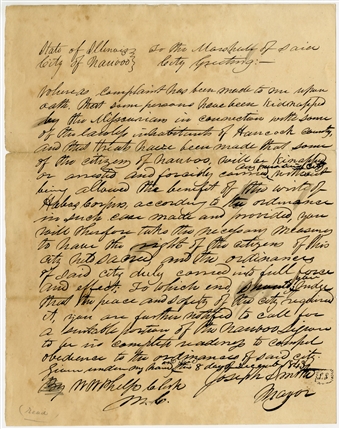 State of Illinois } To the Marshal of said
City of Nauvoo } City Greeting:—
Whereas complaint has been made to me upon
oath that some persons have been kidnapped
by the Missourians in connection with some
of the lawless inhabitants of Hancock county
and that threats have been made that some
of the citizens of Nauvoo, will be kidnapped
or arrested and forcibly carried without
being allowed the benefit of the writ of
Habeas Corpus, according to the ordinance
in such case made and provided, you
will therefore take the necessary measures
to have the rights of the citizens of this
city and the ordinances
of said city duly carried into full force
and effect. To which end should you judge
that the peace and safety of the city required
it, you are further notified to call for
a suitable portion of the Nauvoo Legion
to be in complete readiness to compel
obedience to the ordinances of said city
Given under my hand this 8 day of December 1843
By W W Phelps Clerk Joseph Smith L.S.
M.C. Mayor